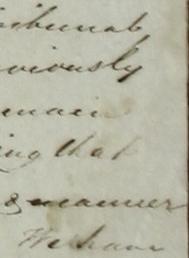 tribunal
viously
main
ing that
& manner
We have